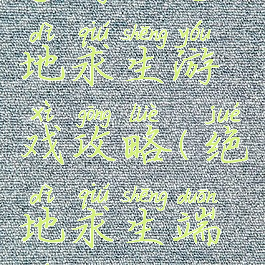 dì qiú shēng yóu
地求生游
xì gōng lüè jué
戏攻略(绝
dì qiú shēng duān
地求生端